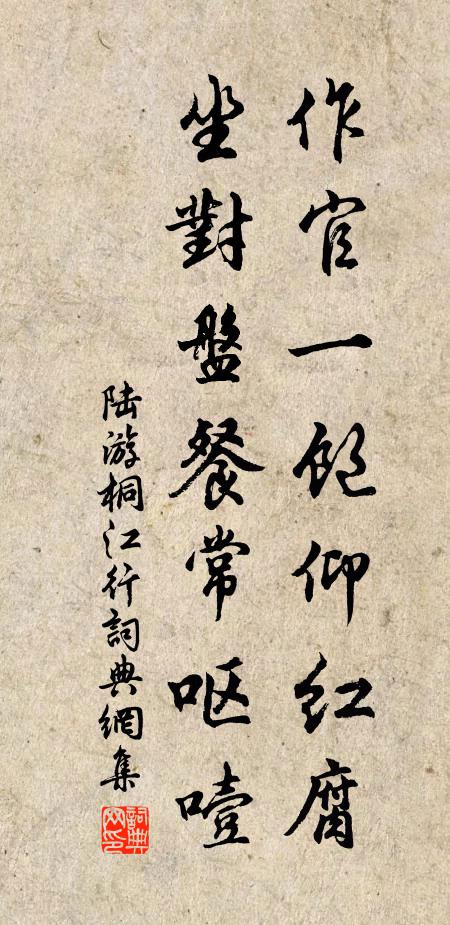 作官一飽仰红腐
坐對盤餐常呕噎
陆游桐江行詞典網集
詞典網印